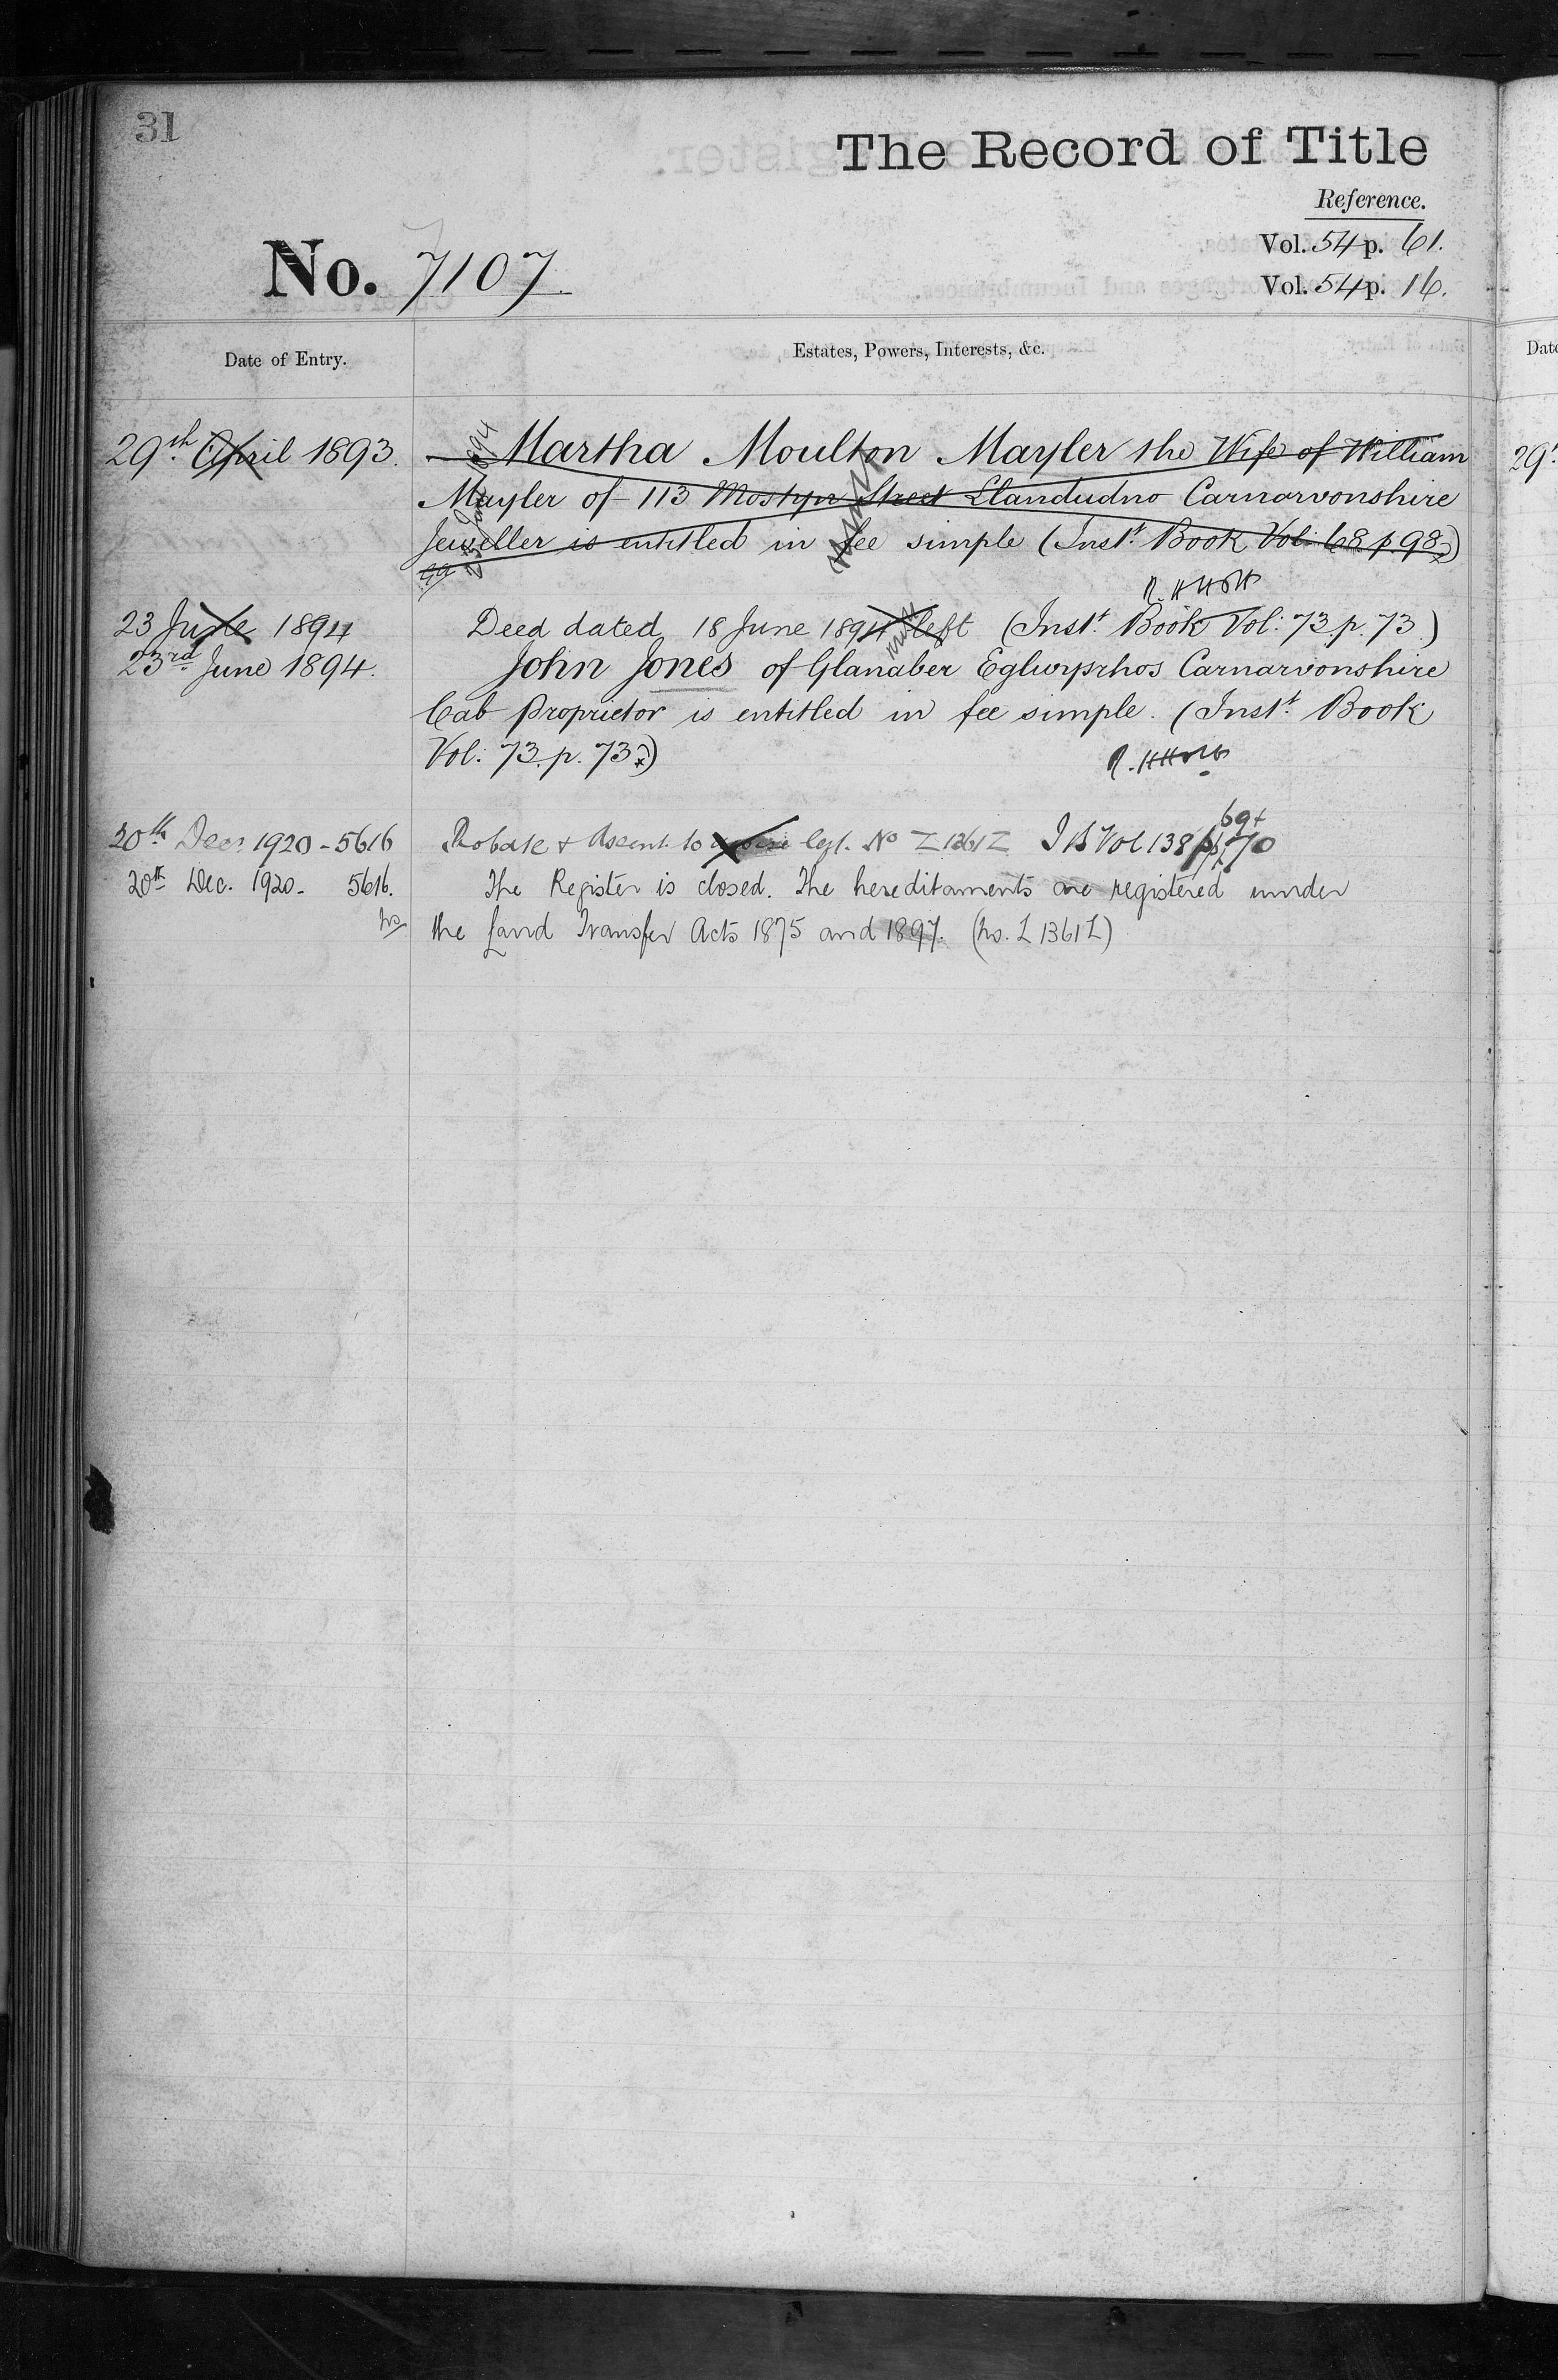 31
The Record of Title
Reference.
Vol. 54 p. 61.
No. 7107.
Vol. 54 p. 16.
Date of Entry.
Estates, Powers, Interests, &c.
29th April 1893.
Martha Moulton Mayler the Wife of William
Mayler of 113 Mostyn Street Llandudno Carnarvonshire
Jeweller is entitled in fee simple (Inst. Book Vol: 68 p. 98.)
23 June 1894
Deed dated 18 June 1894 left (Inst. Book Vol: 73. p. 73.)
23rd June 1894.
John Jones of Glanaber Eglwysrhos Carnarvonshire
Cab Proprietor is entitled in fee simple. (Inst. Book
Vol: 73. p. 73.)
20th Dec. 1920 - 5616
Probate & Assent to Regt. No Z1361Z I B Vol 138 pp. 69 + 70
20th Dec. 1920. 5616.
The Register is closed. The hereditaments are registered under
the Land Transfer Acts 1875 and 1897. (No. Z 1361Z)